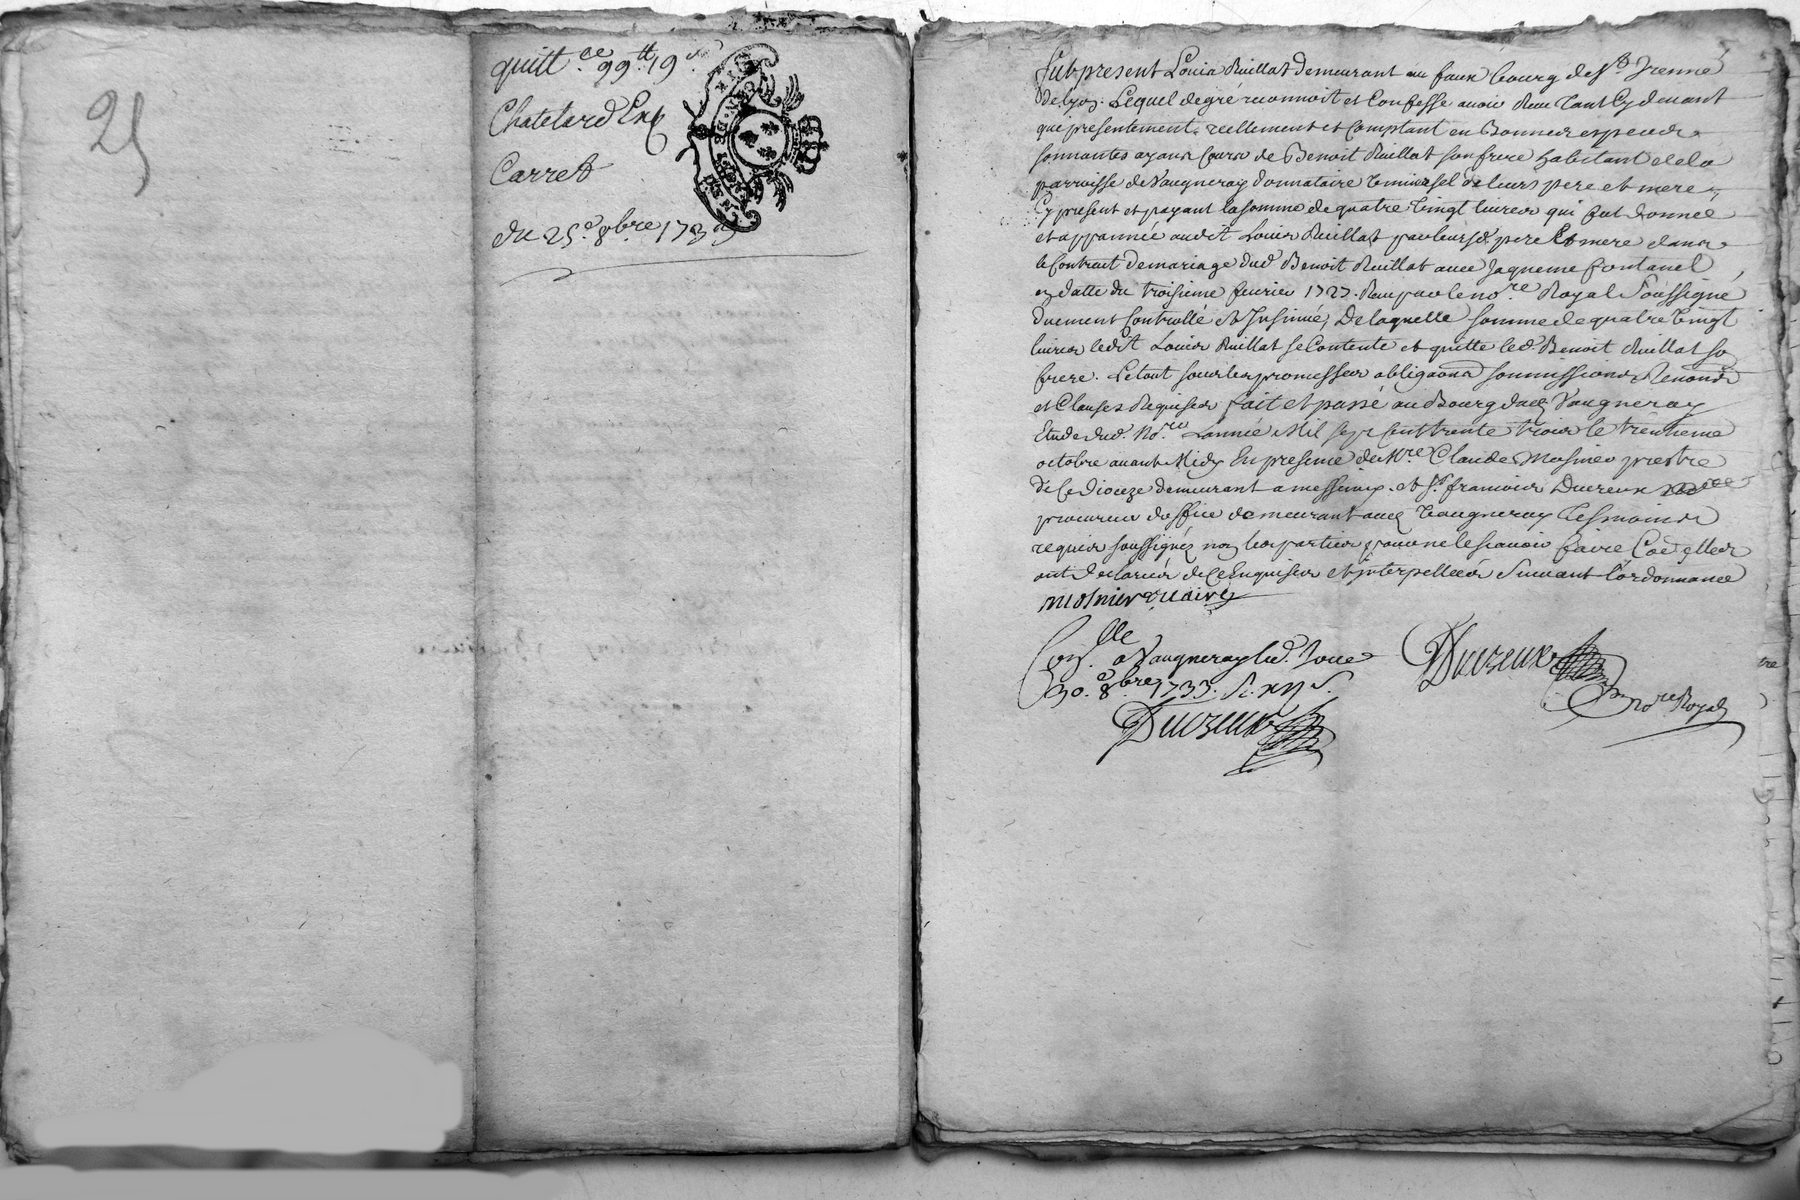 25
quitt.ce 99.tt 19.s
Chatelard Ex
Carret
du 25.e 8.bre 1733
GEN. DE
Fut present Louis Ruillat demeurant au faux bourg de St. Irenné
de Lyon. Lequel de gré reconnoit et Confesse avoir Receu tant Cy devant
que presentement reellement et Comptant en Bonnes especes
sonnantes ayans Cours de Benoit Ruillat son frere habitant de la
parroisse de Vaugneray donnataire Universel de leurs pere et mere
Cy present et payant la somme de quatre Vingt livres qui fut donnée
et appannée audit Louis Ruillat par leurs d. pere Et mere dans
le Contract de mariage dud. Benoit Ruillat avec Jaqueme fontanel
en datte du troisieme fevrier 1727. Receu par le no.re Royal Soussigné
duement Controllé et Insinué, De laquelle somme de quatre Vingt
livres ledit Louis Ruillat se Contente et quitte led. Benoit Ruillat so
frere. Le tout sous les promesses obligaons soumissions Renons
et Clauses Requises fait et passé au Bourg dud. Vaugneray
Etude dud. No.re L'année Mil sept Cent trente trois le trentieme
octobre avant Midy En presence de M.re Claude Mosnier prestre
de Ce Dioceze demeurant a messimy. et S.r francois Ducreux
procureur d'office demeurant aud. Vaugneray Tesmoins
requis soussignés non les parties pour ne le scavoir faire Co.e elles
ont declarées de Ce Enquises et interpellées Suivant l'ordonnance
mosnier vicaire
Con.lle a Vaugneray led. Jour
30.e 8.bre 1733. R. xij s.
Ducreux
Ducreux
No.re Royal